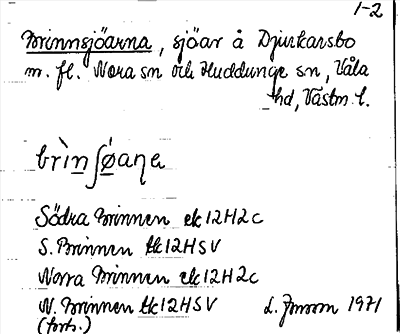 1-2
Brinnsjöarna, sjöar å Djurkarsbo
m. fl. Nora sn och Huddunge sn, Våla
hd, Västm. l.
brìnʃøaɳa
Södra Brinnen ek 12H2c
S. Brinnen tk 12HSV
Norra Brinnen ek 12H2c
N. Brinnen tk 12HSV L. Jonson 1971
(forts.)